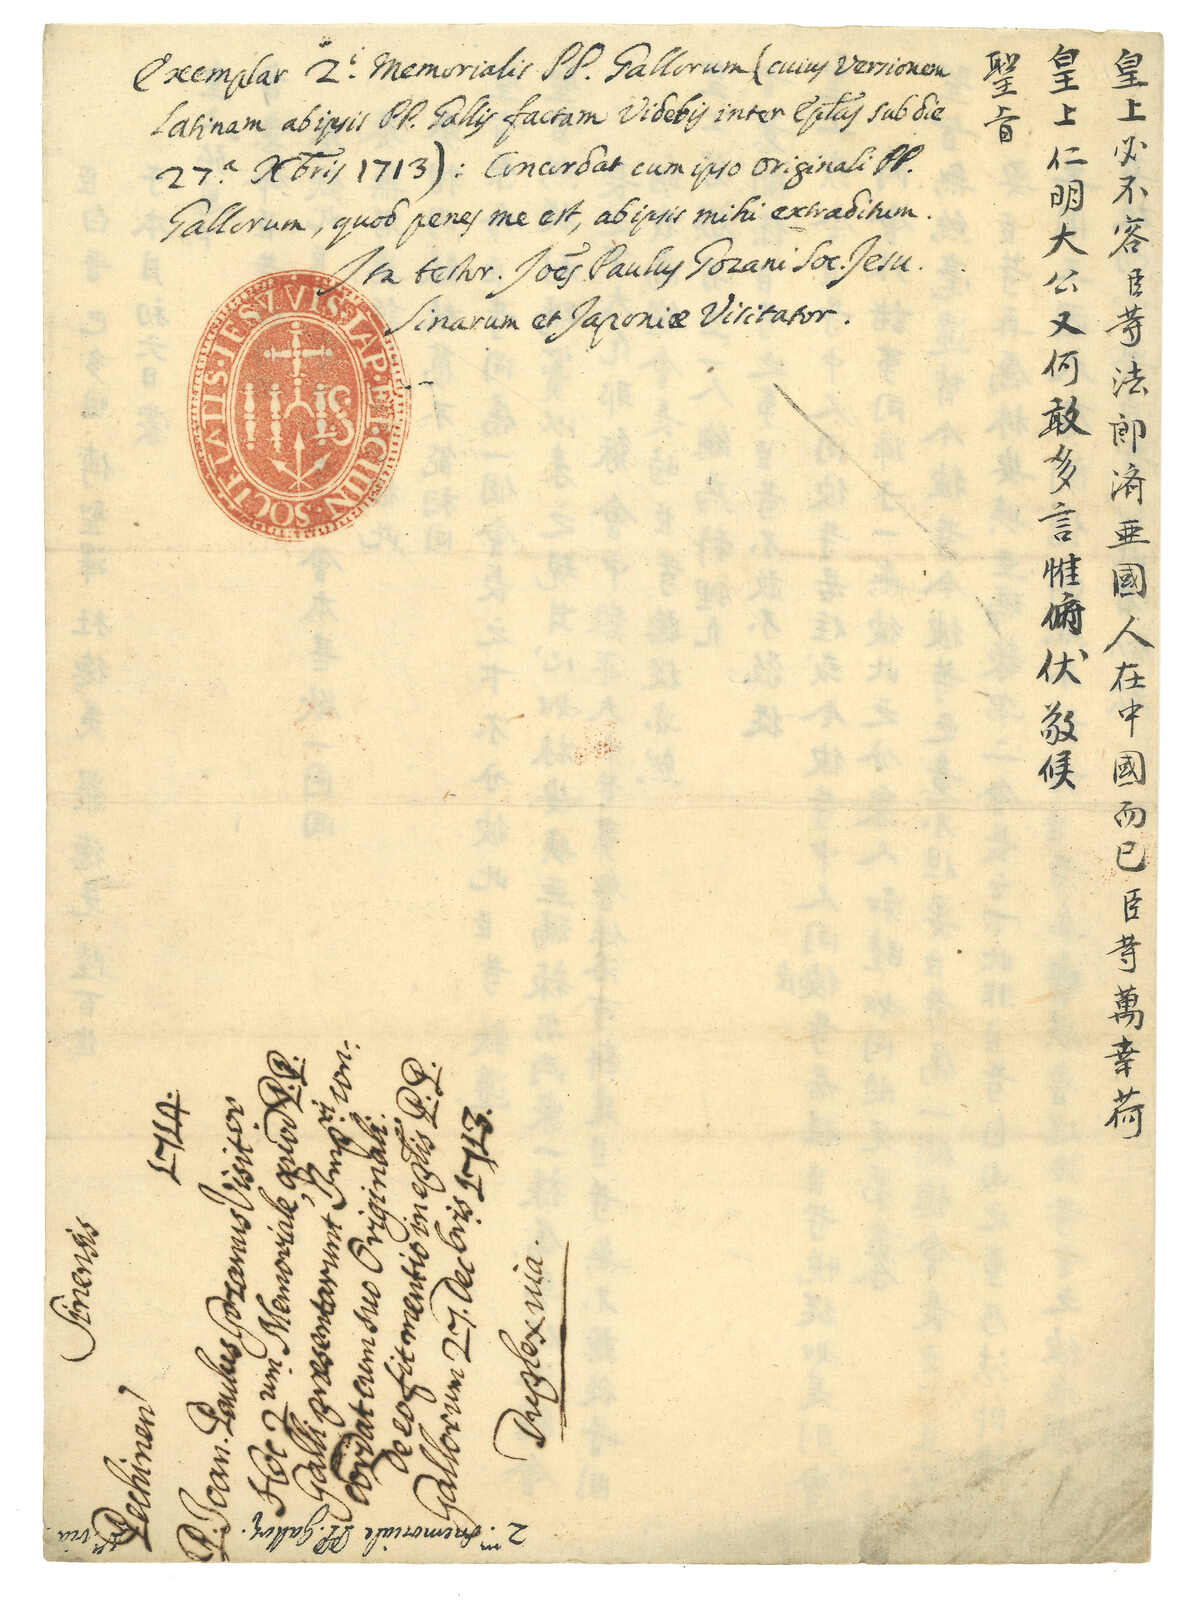 皇上必不容臣等法郎濟亞國人在中國而已臣等萬幸荷
皇上仁明大公又何敢多言惟俯伏敬候
聖旨
Exemplar 2.i Memorialis PP. Gallorum (cuius Versionem
Latinam ab ipsis PP. Gallis factam Videbis inter Eplas sub die
27.a Xbris 1713): Concordat cum ipso originali PP.
Gallorum, quod penes me est, ab ipsis mihi extraditum.
Ita testor. Joēs Paulus Gozani Soc. Jesu
Sinarum et Japoniæ Visitator.
SOCIETATIS·IESV VIS·IAP·ET·CHIN
IHS
Sinensis
Pechinen
1714.
P. Joan. Paulus Gozanus Visitor
Hoc 2um Memoriale quod PP.
Galli præsentarunt Imp.ri con-
cordat cum suo Originali.
de eo fit mentio in eplis PP.
Gallorum 27. Decbris 1713.
Duplex via.
2.m memoriale PP. Gallor.
via